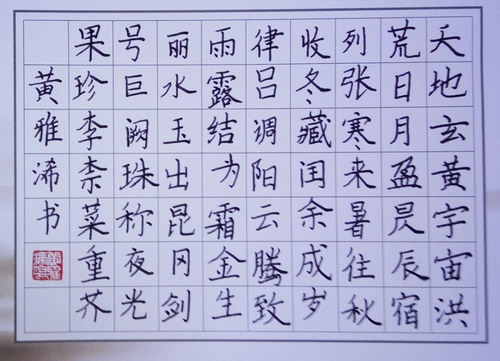 天地玄黄宇宙洪
荒日月盈昃辰宿
列张寒来暑往秋
收冬藏闰余成岁
律吕调阳云腾致
雨露结为霜金生
丽水玉出昆冈剑
号巨阙珠称夜光
果珍李柰菜重芥
黄雅浠书